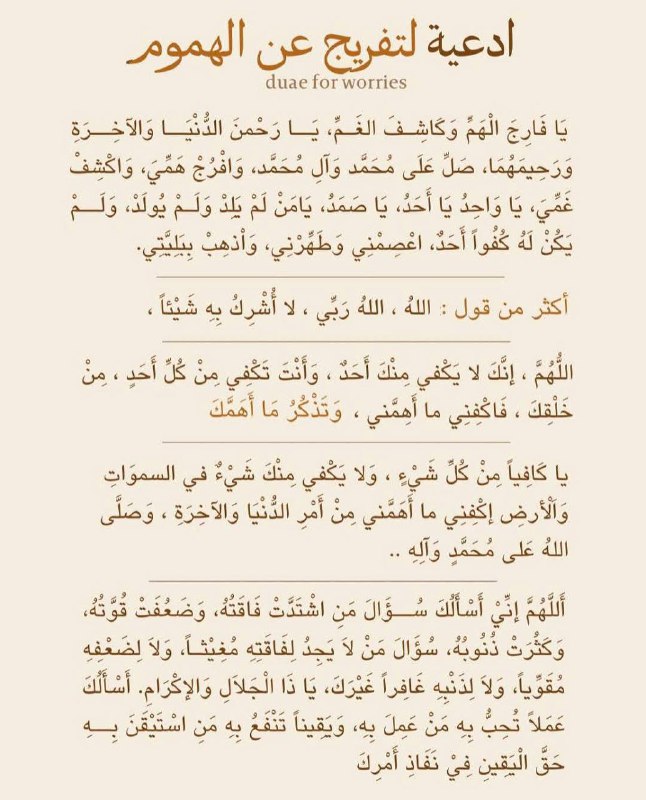 ادعية لتفريج عن الهموم
duae for worries
يَا فَارِجَ الْهَمِّ وَكَاشِـفَ الغَـمِّ، يَـــا رَحْمنَ الدُّنْيَـــا وَالآخِــرَةِ
وَرَحِيمَهُمَا، صَلِّ عَلَى مُحَمَّد وَآلِ مُحَمَّد، وَافْرُجْ هَمِّيَ، وَاكْشِفْ
غَمِّيَ، يَا وَاحِدُ يَا أَحَدُ، يَا صَمَدُ، يَامَنْ لَمْ يَلِدْ وَلَــمْ يُولَدْ، وَلَـــمْ
يَكُنْ لَهُ كُفُواً أَحَدٌ، اعْصِمْنِي وَطَهِّرْنِي، وَاْذهِبْ بِبَلِيَّتِي.
أكثر من قول : اللهُ ، اللهُ رَبِّي ، لا أُشْرِكُ بِهِ شَيْئاً ،
اللُّهُمَّ ، إنَّكَ لا يَكْفي مِنْكَ أَحَدٌ ، وَأَنْتَ تَكْفِي مِنْ كُلِّ أَحَدٍ ، مِنْ
خَلْقِكَ ، فَاكْفِنِي ما أَهِمَّني ، وَتَذْكُرُ مَا أَهَمَّكَ
يا كَافِياً مِنْ كُلِّ شَيْءٍ ، وَلا يَكْفي مِنْكَ شَيْءٌ في السمواتِ
وَاَلْأرضِ إكْفِنِي ما أَهَمَّني مِنْ أَمْرِ الدُّنْيَا وَالآخِرَةِ ، وَصَلَّى
اللهُ عَلى مُحَمَّدٍ وَآلِهِ ..
أَللَّهُمَّ إنِّيْ أَسْأَلُكَ سُـــؤَالَ مَنِ اشْتَدَّتْ فَاقَتُهُ، وَضَعُفَتْ قُوَّتُهُ،
وَكَثُرَتْ ذُنُوبُهُ، سُؤَالَ مَنْ لاَ يَجِدُ لِفَاقَتِهِ مُغِيْثـاً، وَلاَ لِضَعْفِهِ
مُقَوِّياً، وَلاَ لِذَنْبِهِ غَافِراً غَيْرَكَ، يَا ذَا الْجَلاَلِ وَالإكْرَامِ. أَسْأَلُكَ
عَمَلاً تُحِبُّ بِهِ مَنْ عَمِلَ بِهِ، وَيَقِيناً تَنْفَعُ بِهِ مَنِ اسْتَيْقَنَ بِـــهِ
حَقَّ الْيَقينِ فِيْ نَفَاذِ أَمْرِكَ